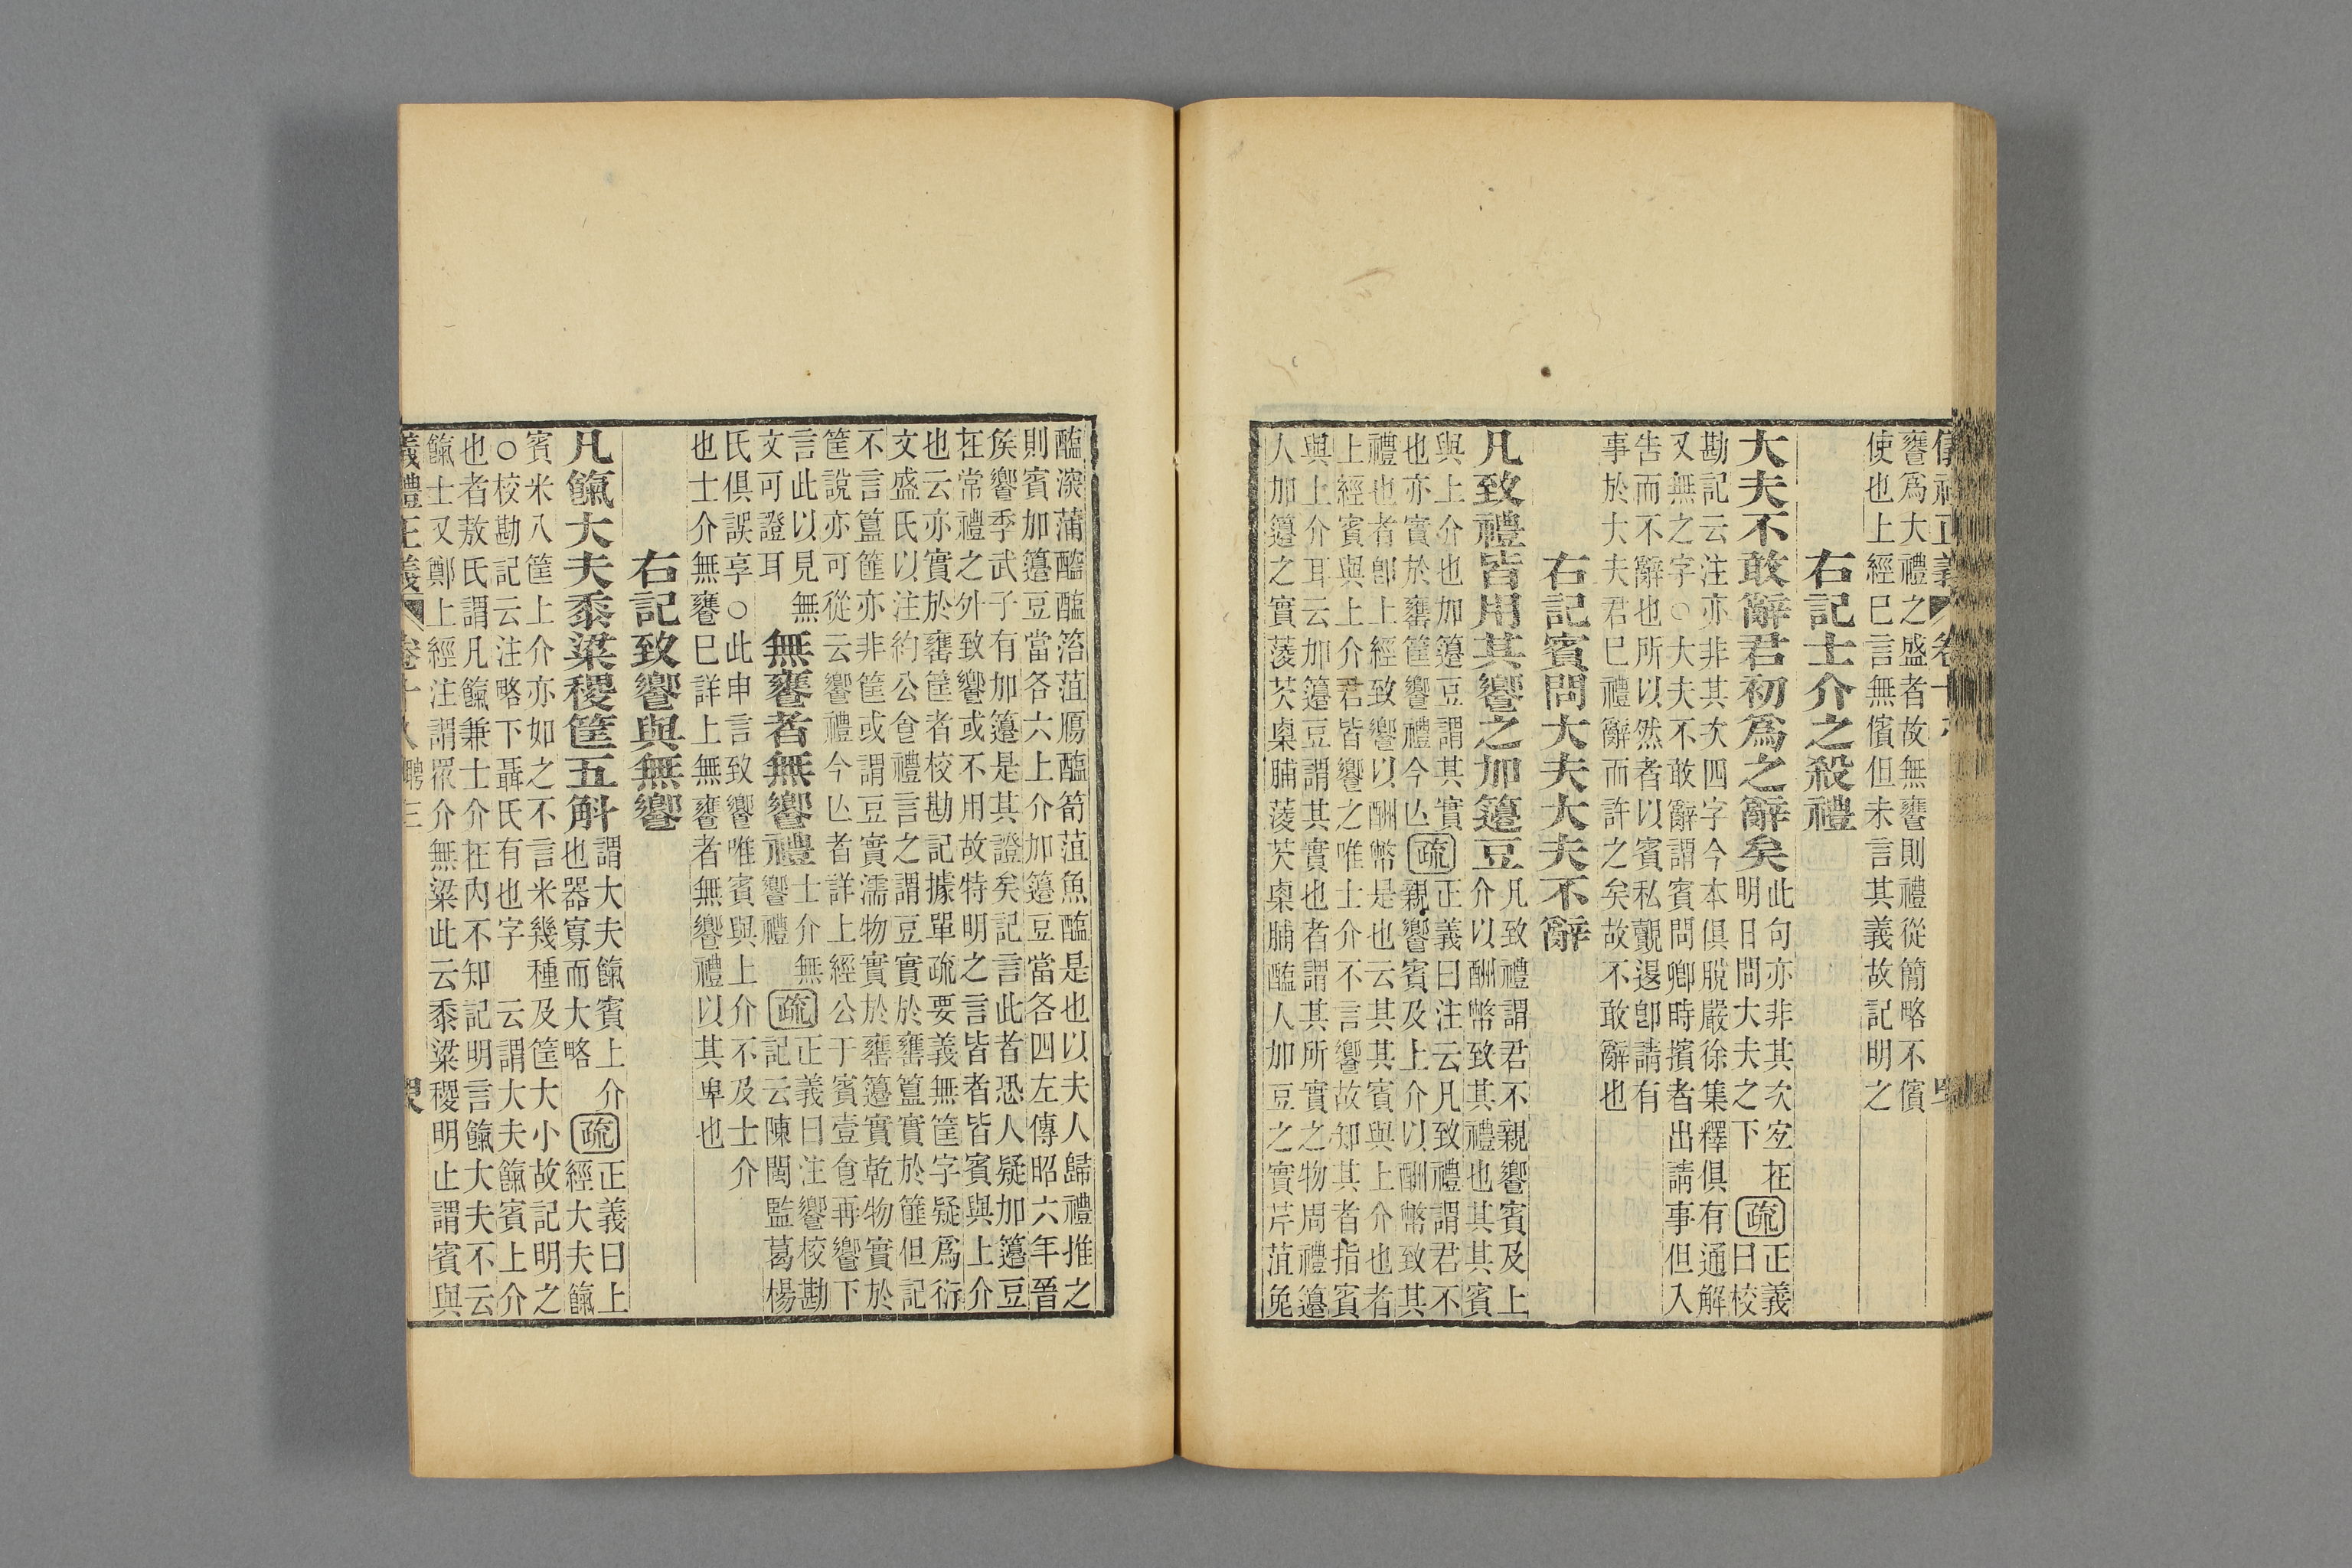 饔爲大禮之盛者故無饔則禮從簡略不儐
使也上經巳言無儐但未言其義故記明之
右記士介之殺禮
大夫不敢辭君初爲之辭矣
此句亦非其次宐在
明日問大夫之下
疏
正義
曰校
勘記云注亦非其次四字今本俱脫嚴徐集釋俱有通解
又無之字○大夫不敢辭謂賓問卿時擯者出請事但入
告而不辭也所以然者以賓私覿退卽請有
事於大夫君巳禮辭而許之矣故不敢辭也
右記賓問大夫大夫不辭
凡致禮皆用其饗之加籩豆
凡致禮謂君不親饗賓及上
介以酬幣致其禮也其其賓
與上介也加籩豆謂其實
也亦實於罋筐饗禮今亾
疏
正義曰注云凡致禮謂君不
親饗賓及上介以酬幣致其
禮也者卽上經致饗以酬幣是也云其其賓與上介也者
上經賓與上介君皆饗之唯士介不言饗故知其者指賓
與上介耳云加籩豆謂其實也者謂其所實之物周禮籩
人加籩之實蔆芡㮚脯蔆芡㮚脯醢人加豆之實芹菹兔
醢深蒲醓醢箈菹鴈醢筍菹魚醢是也以夫人歸禮推之
則賓加籩豆當各六上介加籩豆當各四左傳昭六年晉
矦饗季武子有加籩是其證矣記言此者恐人疑加籩豆
在常禮之外致饗或不用故特明之言皆者皆賓與上介
也云亦實於罋筐者校勘記據單疏要義無筐字疑爲衍
文盛氏以注約公食禮言之謂豆實於罋簠實於篚但記
不言簠篚亦非筐或謂豆實濡物實於罋籩實乾物實於
筐說亦可從云饗禮今亾者詳上經公于賓壹食再饗下
言此以見無
文可證耳
無饔者無饗禮
士介無
饗禮
疏
正義曰注饗校勘
記云陳閩監葛楊
氏俱誤享○此申言致饗唯賓與上介不及士介
也士介無饔巳詳上無饔者無饗禮以其卑也
右記致饗與無饗
凡餼大夫黍粱稷筐五斛
謂大夫餼賓上介
也器寡而大略
疏
正義曰上
經大夫餼
賓米八筐上介亦如之不言米幾種及筐大小故記明之
○校勘記云注略下聶氏有也字　云謂大夫餼賓上介
也者敖氏謂凡餼兼士介在內不知記明言餼大夫不云
餼士又鄭上經注謂眾介無粱此云黍粱稷明止謂賓與